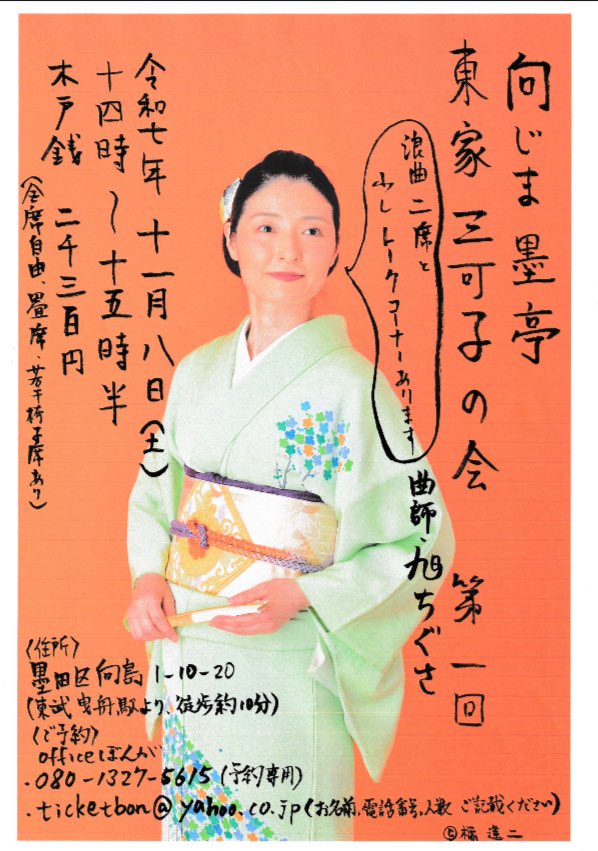 向じま墨亭
東家三可子の会 第一回
浪曲二席と
少しトークコーナーあります
曲師・旭ちぐさ
令和七年 十一月八日(土)
十四時〜十五時半
木戸銭 二千三百円
(全席自由、畳席・若干椅子席あり)
〈住所〉
墨田区向島1-10-20
(東武曳舟駅より、徒歩約10分)
〈ご予約〉
officeぼんが
・080-1327-5615(予約専用)
・ticketbon@yahoo.co.jp(お名前、電話番号、人数 ご記載ください)